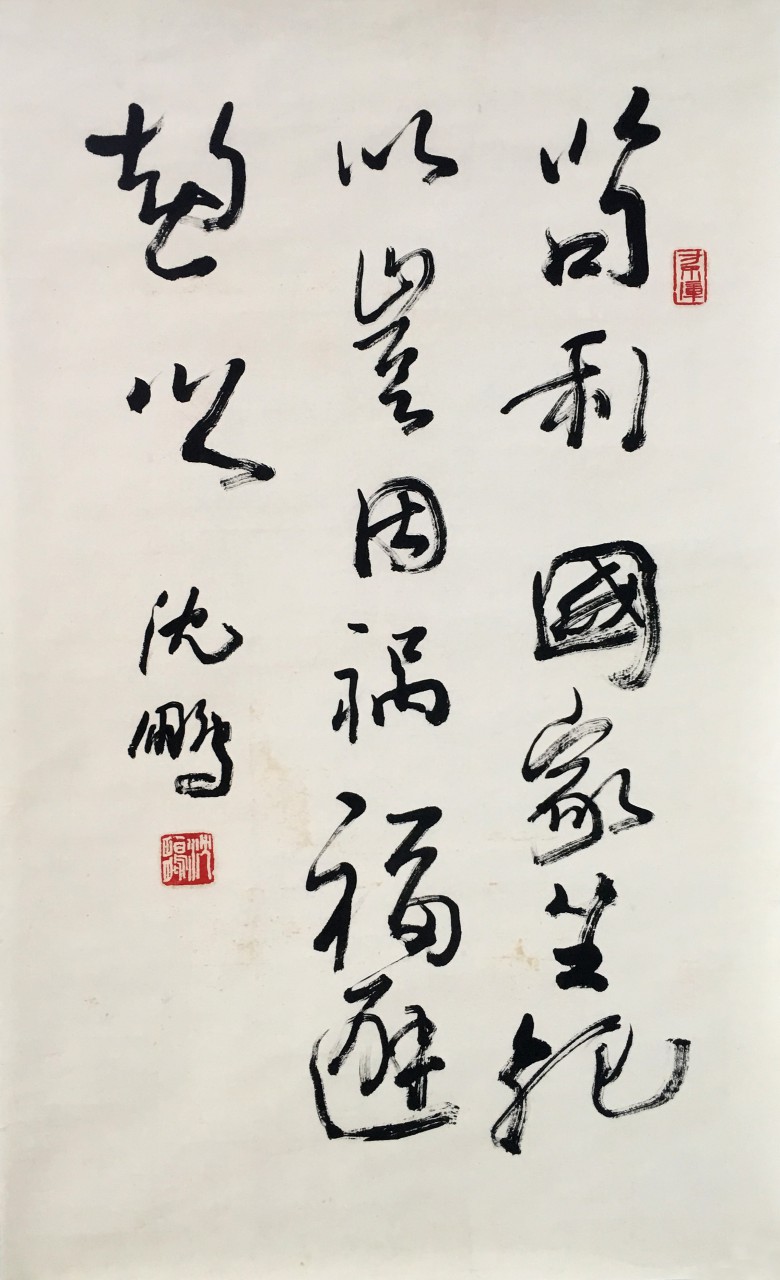 苟利國家生死
以豈因祸福避
趨之
沈鵬